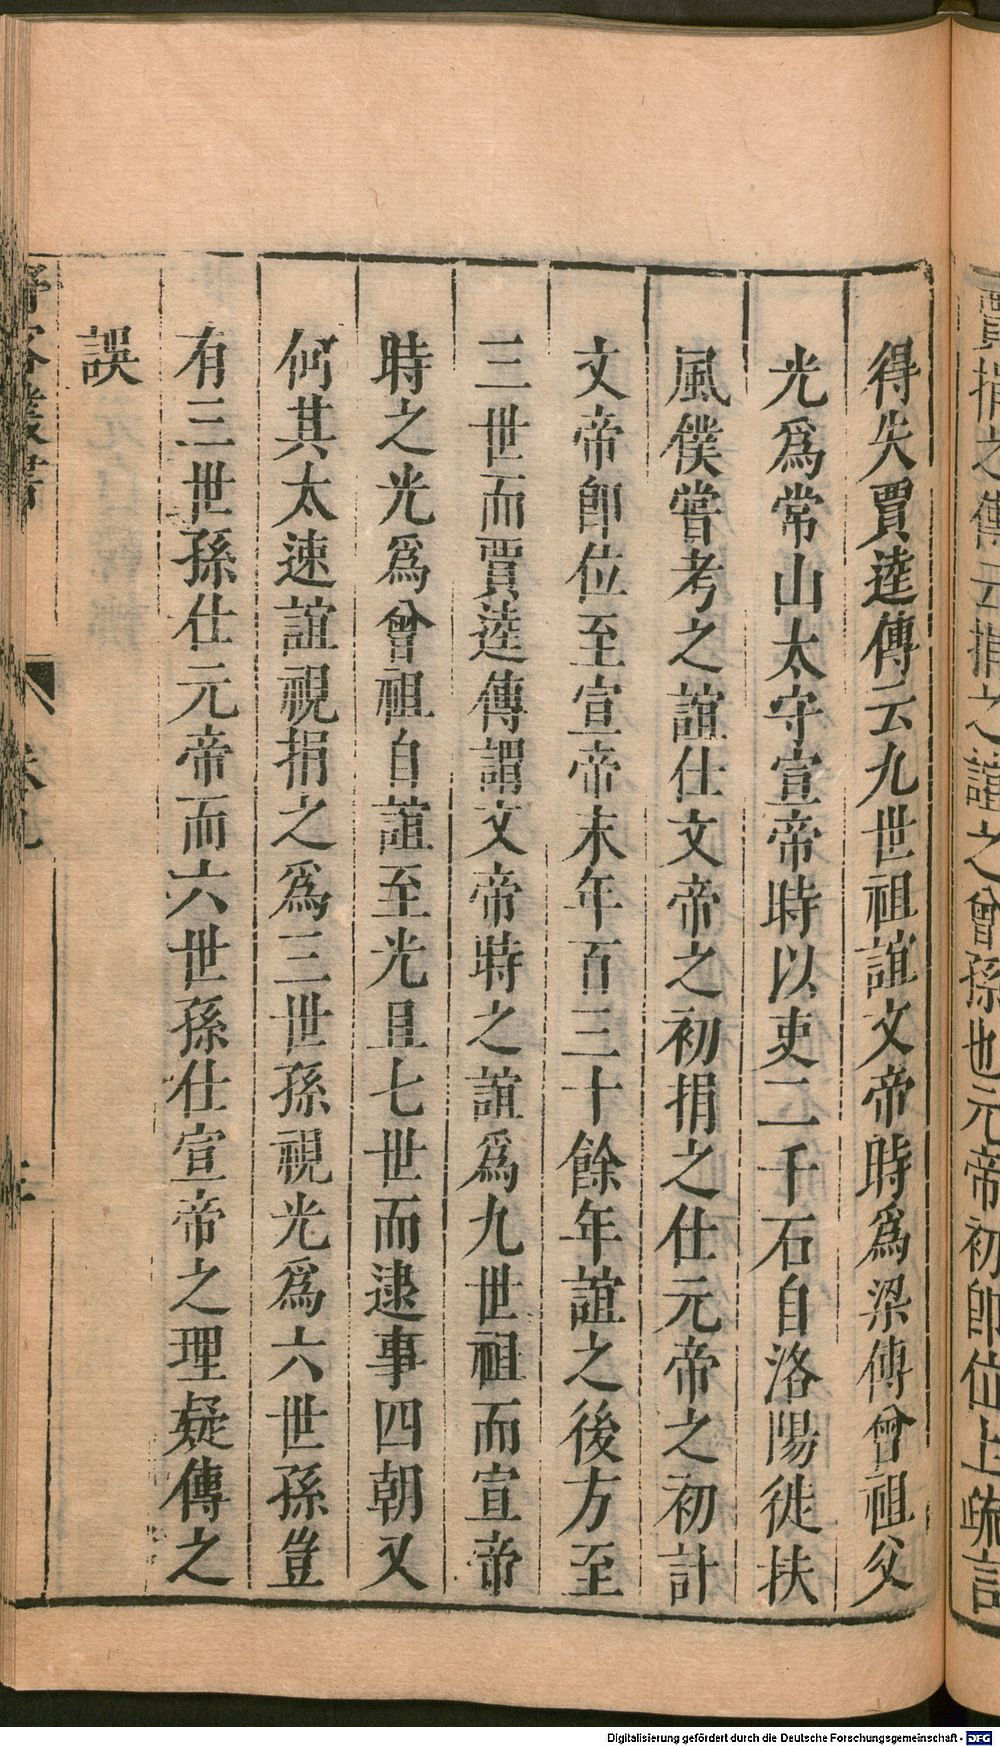 賈捐之傳云捐之誼之曾孫也元帝初卽位上疏言
得失賈逵傳云九世祖誼文帝時爲梁傅曾祖父
光爲常山太守宣帝時以吏二千石自洛陽徙扶
風僕嘗考之誼仕文帝之初捐之仕元帝之初計
文帝卽位至宣帝末年百三十餘年誼之後方至
三世而賈逵傳謂文帝時之誼爲九世祖而宣帝
時之光爲曾祖自誼至光且七世而逮事四朝又
何其太速誼視捐之爲三世孫視光爲六世孫豈
有三世孫仕元帝而六世孫仕宣帝之理疑傳之
誤
Digitalisierung gefördert durch die Deutsche Forschungsgemeinschaft - DFG